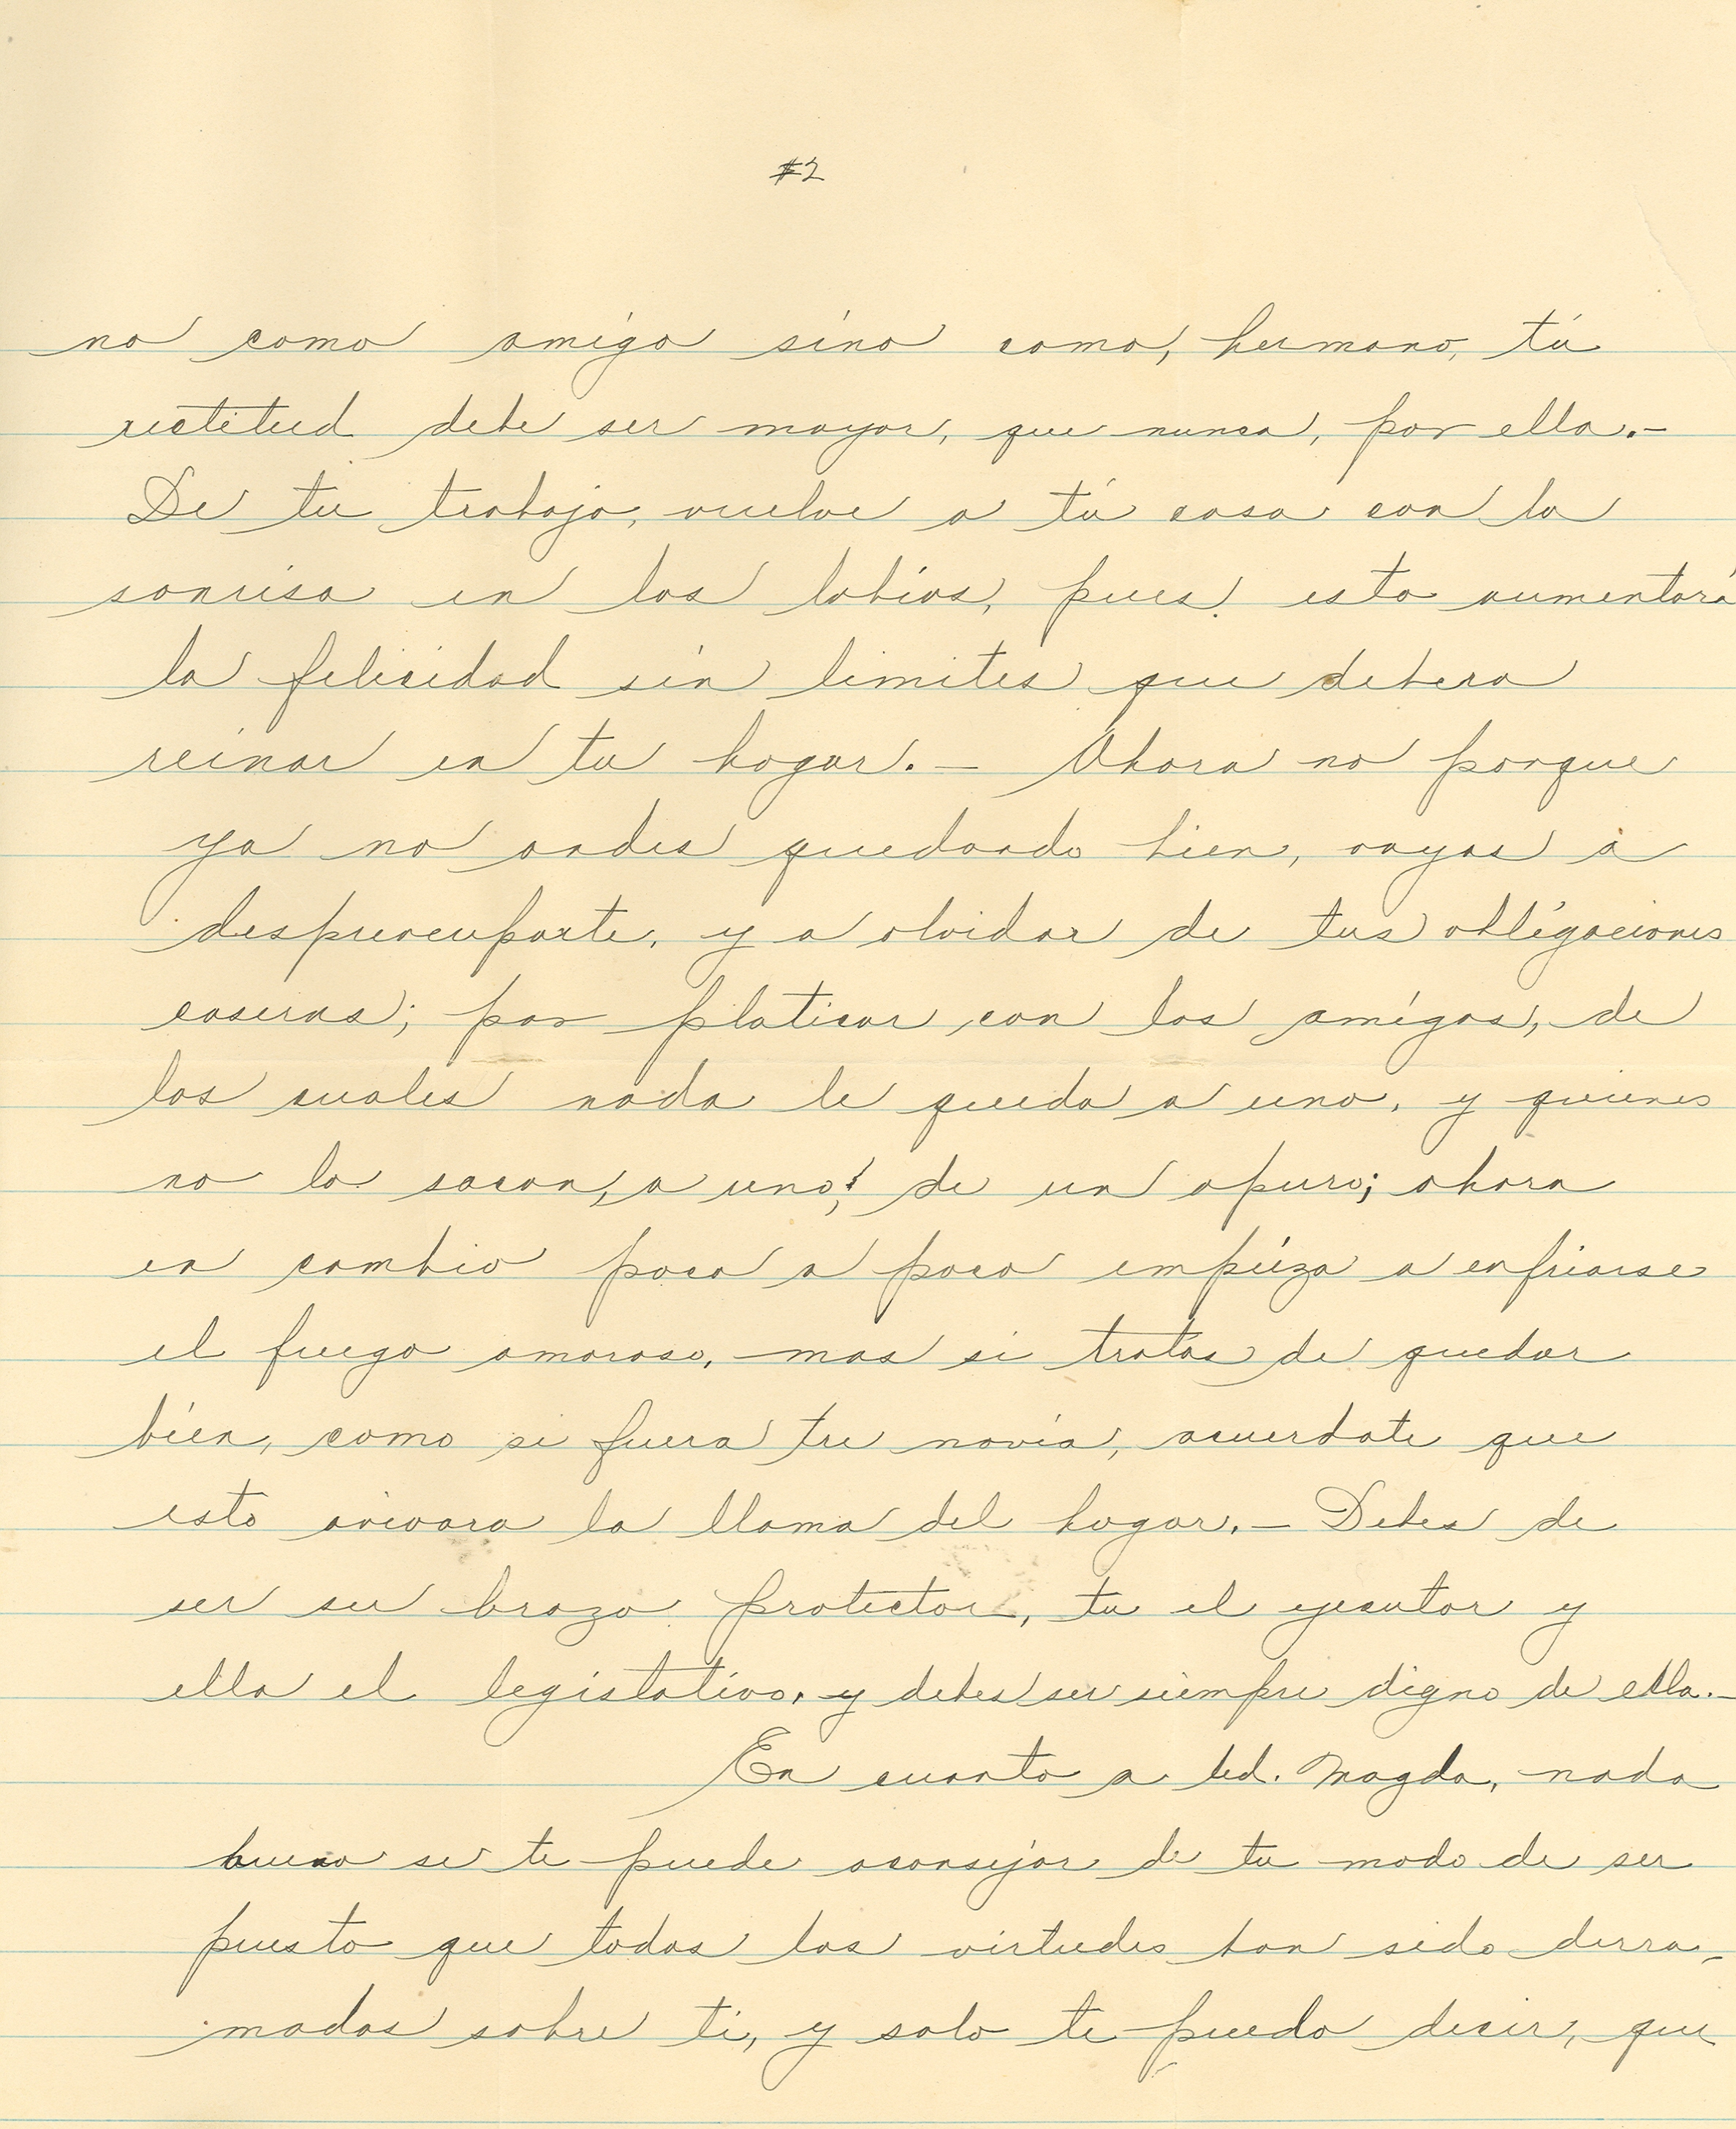 #2
no como amigo sino como, hermano, tú
rectitud debe ser mayor, que nunca, por ella.-
De tu trabajo, vuelve a tú casa con la
sonrisa en los labios, pues esto aumentará
la felicidad sin limites que debera
reinar en tu hogar.- Ahora no porque
ya no andes quedando bien, vayas a
despreocuparte, y a olvidar de tus obligaciones
caseras; por platicar con los amigos, de
los cuales nada le queda a uno, y quienes
no lo sacan, a uno, de un apuro; ahora
en cambio poco a poco empieza a enfriarse
el fuego amoroso, mas si tratas de quedar
bien, como si fuera tu novia, acuerdate que
esto avivara la llama del hogar.- Debes de
ser su brazo protector, tu el ejecutor y
ella el legistativo, y debes ser siempre digno de ella.-
En cuanto a Ud. Magda, nada
bueno se te puede aconsejar de tu modo de ser
puesto que todas las virtudes han sido derra-
madas sobre ti, y solo te puedo decir, que